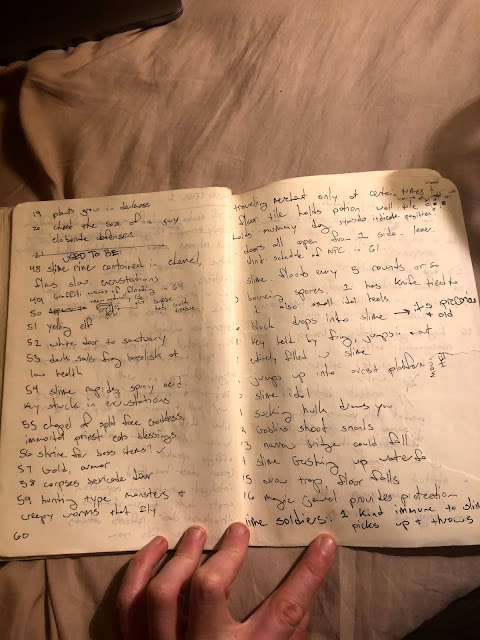 19 plants grow in darkness
20 chest the size of a guy
elaborate defenses
21
USED TO BE:
48 slime river contained in channel,
flows slow encrustations
49 Graffiti warns of flooding in 64
50
51 yelling elf
52 white door to sanctuary
53 dark halls frog basilisk at
low health
54 slime rapids, spray acid
key stuck in encrustations
55 chapel of split face Goddess,
immortal priest eats blessings
56 shrine for boss items? ✓
57 Gold, armor
58 corpses barricade door
59 hunting type monsters +
creepy worms that fly
60
traveling merchant only at certain times
floor tile holds potion wall tile
holds mummy dog
indicate position
doors all open from 1 side. lever.
schedule of NPC in 61
slime. floods every 5 rounds or so
bouncing spores 1 has knife tied to
it also. small idol heals.
block drops into slime → its precious
+ old
key held by frog, jumps in + out
filled w slime
jumps up into overcast platform
slime idol
sucking hulk draws you
2 Goblins shoot snails
3 narrow bridge could fall
slime Gushing up waterfa
15 trap floor falls
16 magic jewel provides protection
ime soldiers. 1 kind immune to sli
picks up + throws